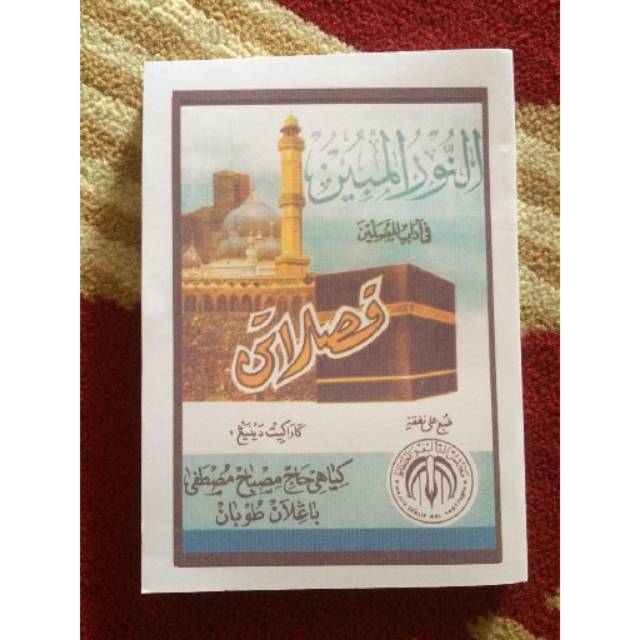 النُّوْرُ الْمُبِيْنُ
فى آداب المصلين
فصلاتن
طبع على نفقة
كاراكيت دينيڠ :
كياهى حاج مصباح مصطفى
باڠيلان طوبان